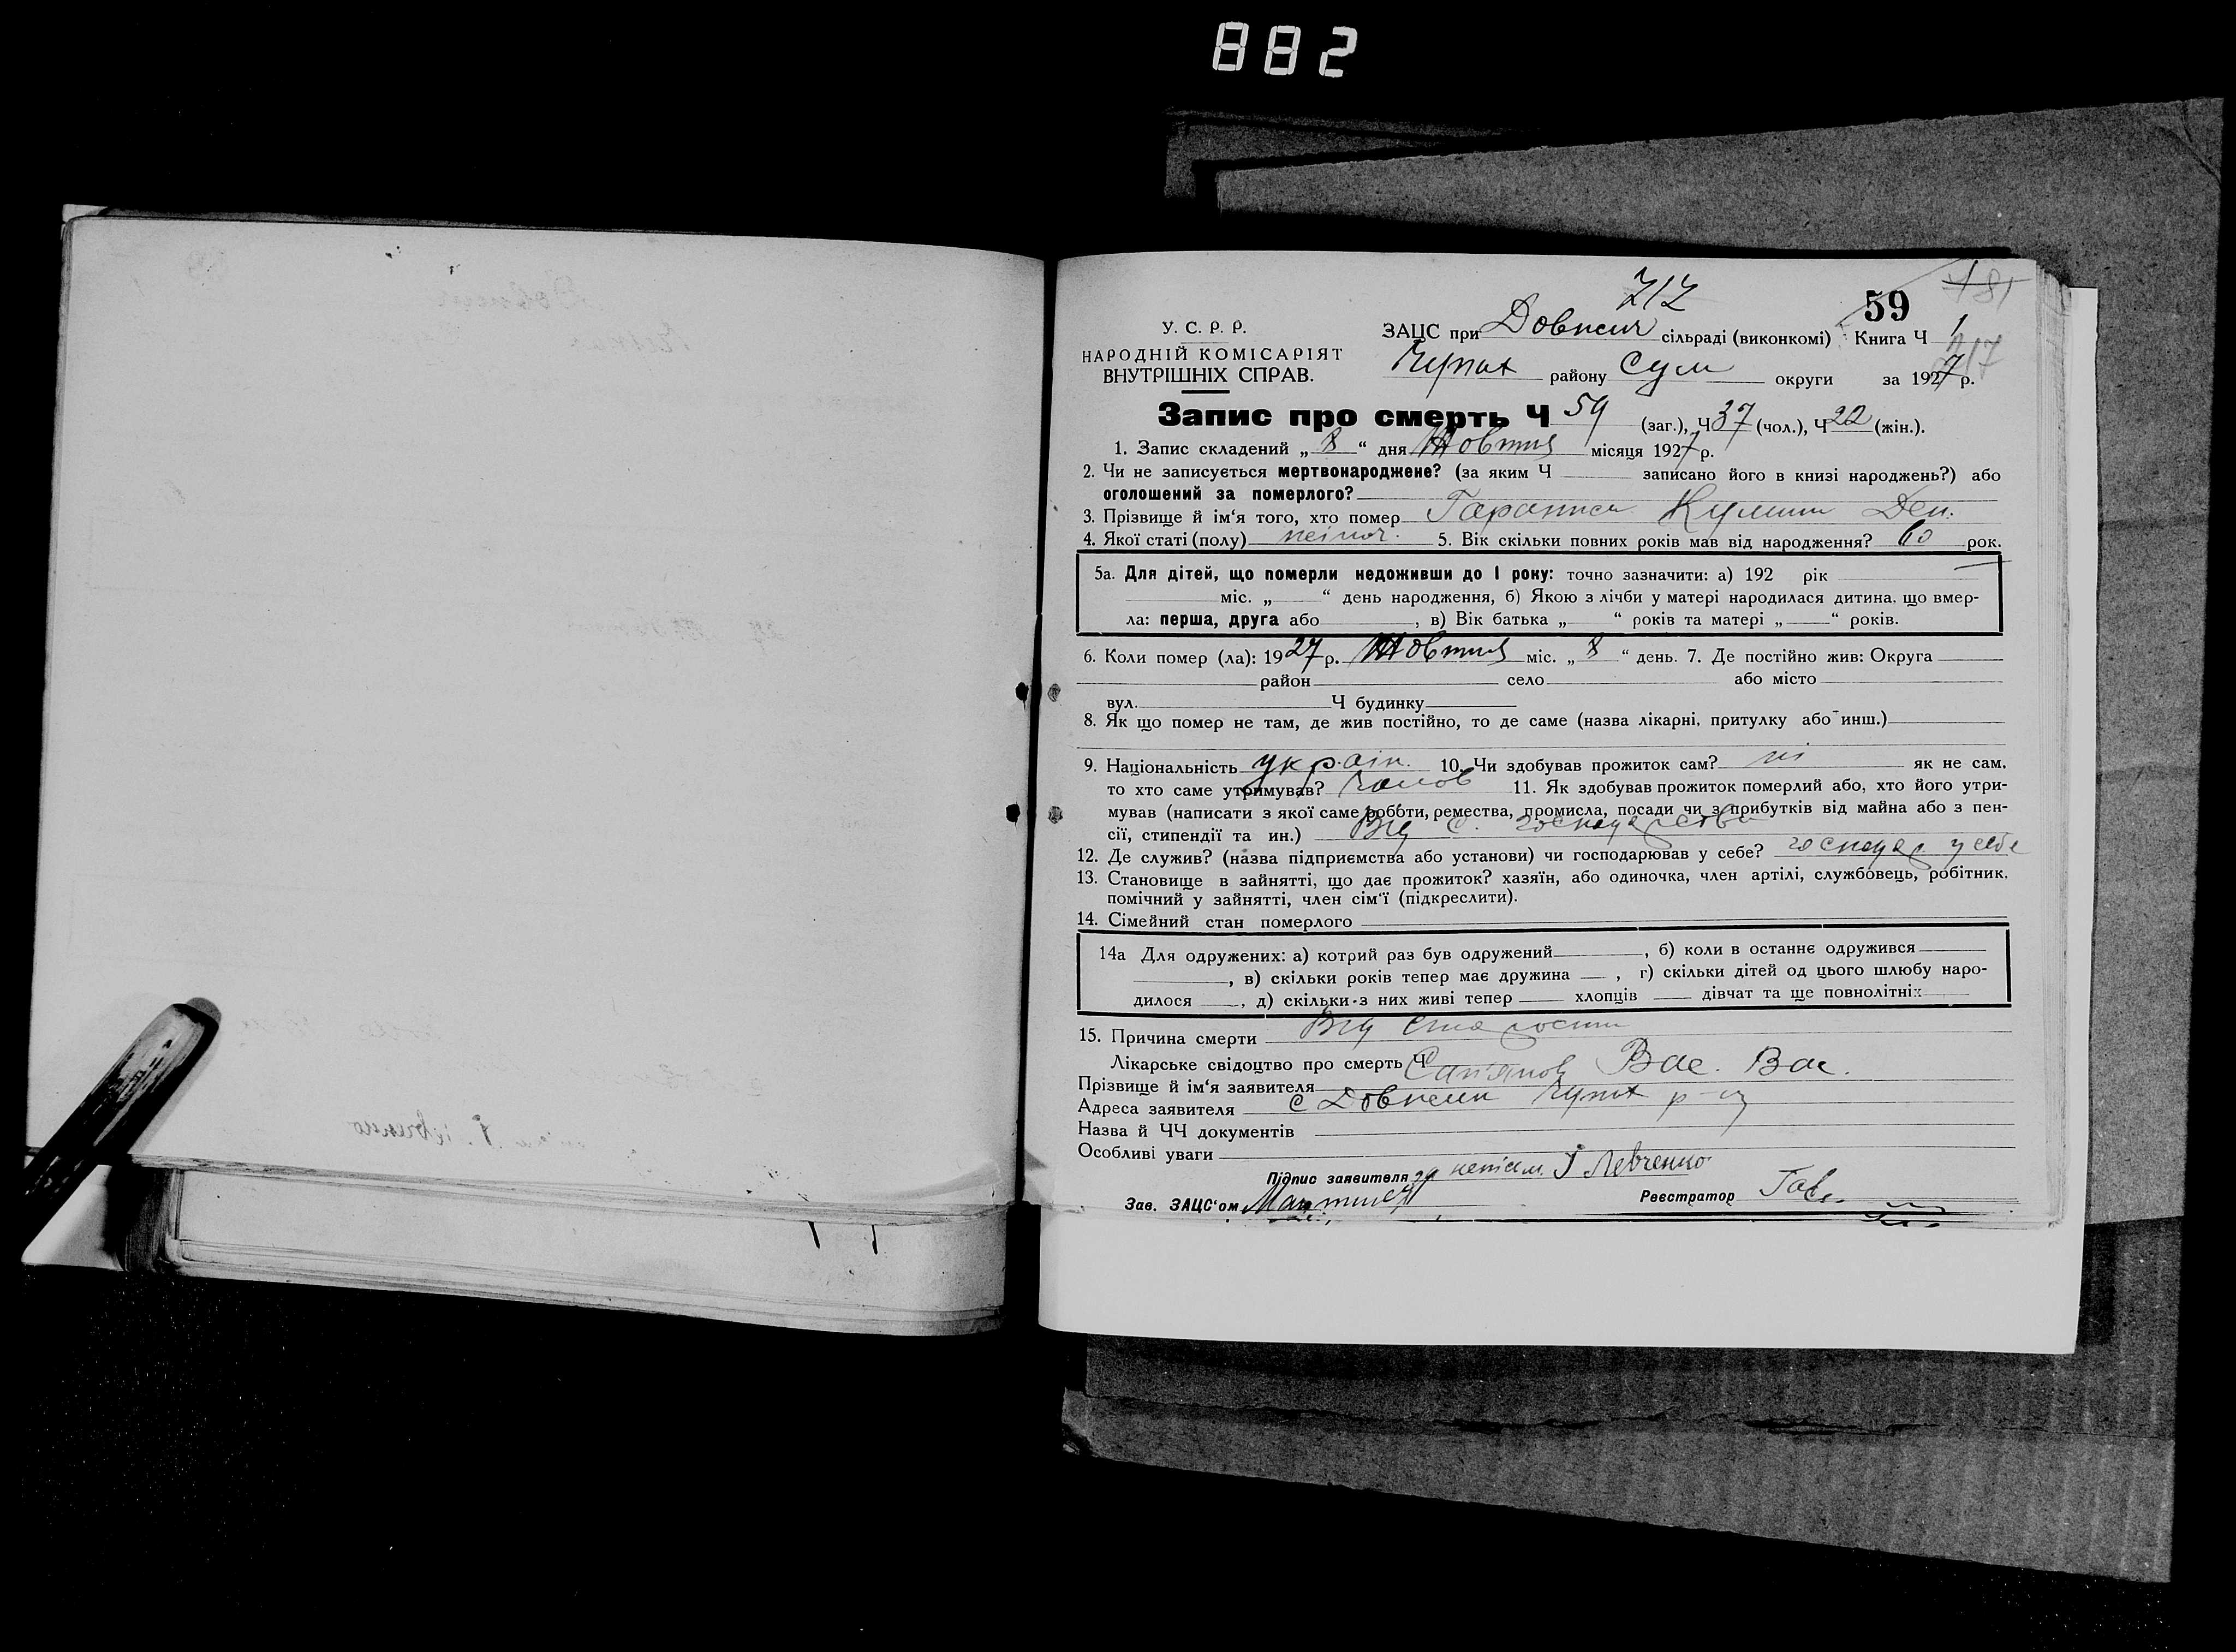 882
717
59
У. С. Р. Р.
НАРОДНІЙ КОМІСАРІЯТ
ВНУТРІШНІХ СПРАВ.
ЗАЦС при сільраді (виконкомі) Книга Ч 1
району Сум округи за 1927 р.
217
Запис про смерть Ч 59 (заг.), Ч 37 (чол.), Ч 22 (жін.).
1. Запис складений „ 8 “ дня Жовтня місяця 1927 р.
2. Чи не записується мертвонароджене? (за яким Ч записано його в книзі народжень?) або
оголошений за померлого?
3. Прізвище й ім‘я того, хто помер
4. Якої статі (полу) 5. Вік скільки повних років мав від народження? 60 рок.
5а. Для дітей, що померли недоживши до 1 року: точно зазначити: а) 192 рік
міс. „ “ день народження, б) Якою з лічби у матері народилася дитина, що вмер-
ла: перша, друга або , в) Вік батька „ “ років та матері „ “ років.
6. Коли помер (ла): 1927 р. Жовтня міс. „ 8 “ день. 7. Де постійно жив: Округа
район село або місто
вул. Ч будинку
8. Як що помер не там, де жив постійно, то де саме (назва лікарні, притулку або инш.)
9. Національність україн. 10. Чи здобував прожиток сам? ні як не сам,
то хто саме утримував? 11. Як здобував прожиток померлий або, хто його утри-
мував (написати з якої саме роботи, ремества, промисла, посади чи з прибутків від майна або з пен-
сії, стипендії та ин.) Від с. господарства
12. Де служив? (назва підприємства або установи) чи господарював у себе? господар. у себе
13. Становище в зайнятті, що дає прожиток? хазяїн, або одиночка, член артілі, службовець, робітник,
помічний у зайнятті, член сім‘ї (підкреслити).
14. Сімейний стан померлого
14а Для одружених: а) котрий раз був одружений , б) коли в останнє одружився
, в) скільки років тепер має дружина , г) скільки дітей од цього шлюбу наро-
дилося , д) скільки з них живі тепер хлопців дівчат та ще повнолітніх
15. Причина смерти Від старости
Лікарське свідоцтво про смерть Ч
Прізвище й ім‘я заявителя Вас. Вас.
Адреса заявителя с р-у
Назва й ЧЧ документів
Особливі уваги
Підпис заявителя за неписм. І Левченко
Зав. ЗАЦС‘ом Реєстратор